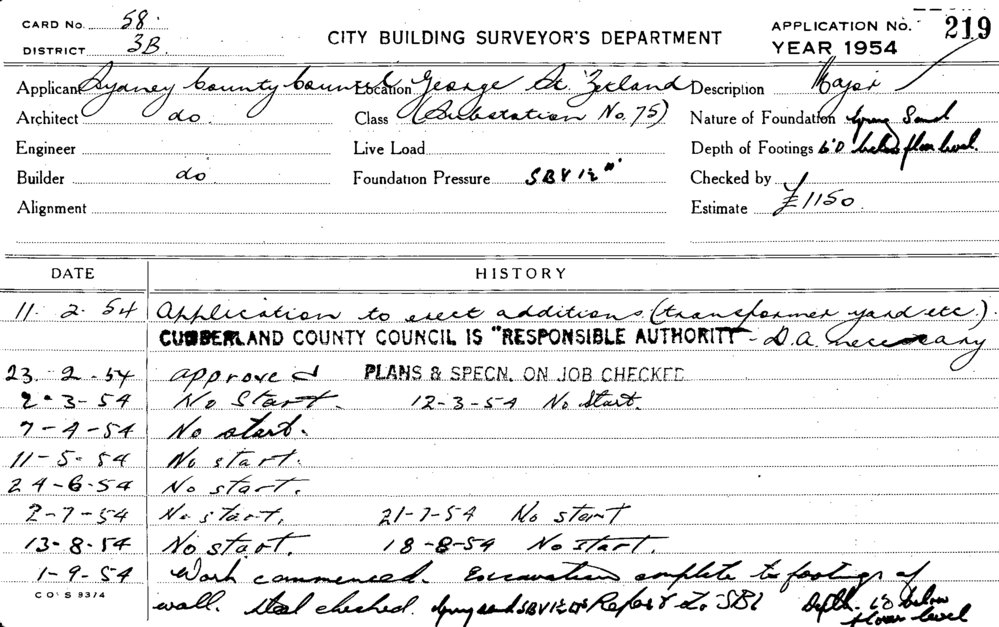 CARD No. 58.
DISTRICT 3B.
CITY BUILDING SURVEYOR'S DEPARTMENT
APPLICATION No. 219
YEAR 1954
Applicant Sydney County Council Location George St. Zetland Description Major
Architect do. Class (Substation No. 75) Nature of Foundation Spring Sand
Engineer Live Load Depth of Footings 6'0 below floor level.
Builder do Foundation Pressure SBV 1½
Checked by
Alignment Estimate £1150.
DATE HISTORY
11. 2. 54 Application to erect additions (transformer yard etc.).
CUMBERLAND COUNTY COUNCIL IS "RESPONSIBLE AUTHORITY - D.A. necessary
23. 2. 54 approved PLANS & SPECN. ON JOB CHECKED
2-3-54 No Start. 12-3-54 No Start.
7-4-54 No start.
11-5-54 No start.
24-6-54 No start.
2-7-54 No start. 21-7-54 No start
13-8-54 No start. 18-8-54 No start.
1-9-54 Work commenced. Excavation complete to footings of
wall. Steel checked. Spring sand SBV 1½ Report to SBI Depth 6'0 below
floor level
CO'S 9374